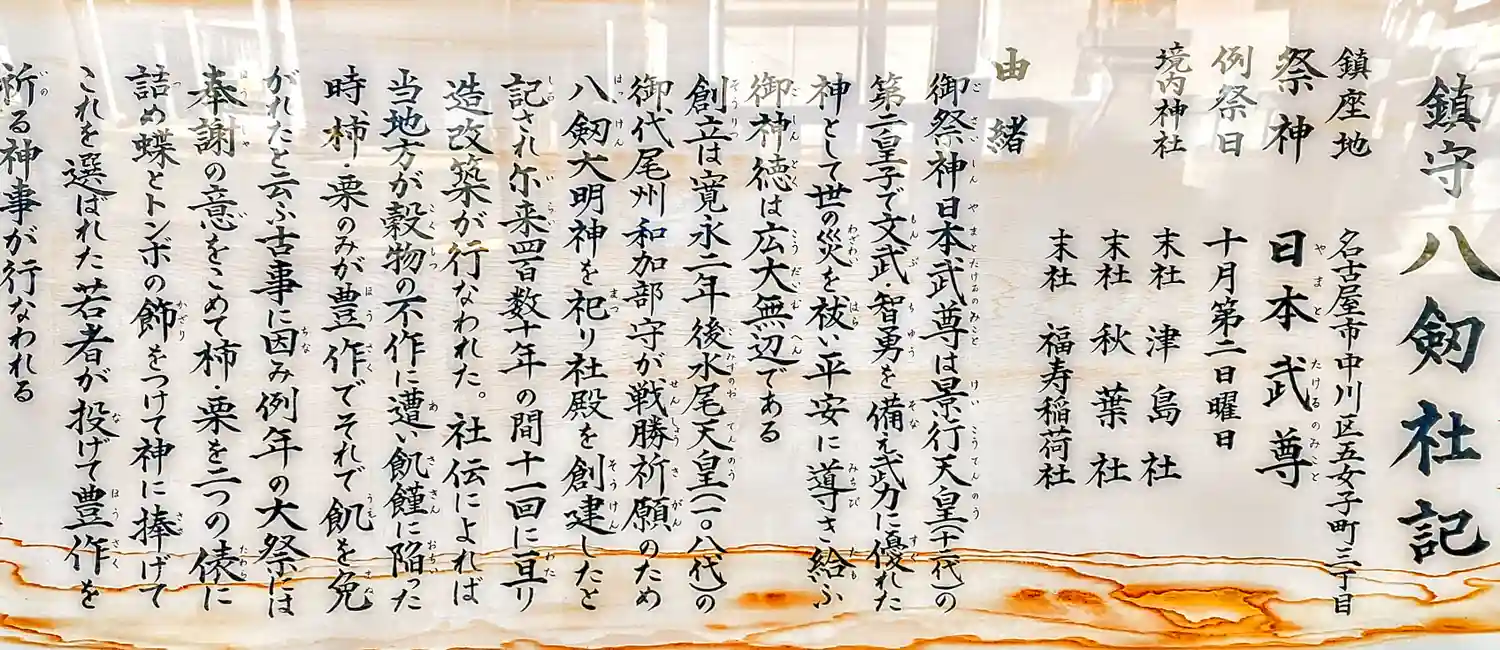 鎮守 八剱社記
鎮座地 名古屋市中川区五女子町三丁目
祭神 日本武尊
例祭日 十月第二日曜日
境内神社 末社 津島社
末社 秋葉社
末社 福寿稲荷社
由緒
御祭神日本武尊は景行天皇(十二代)の
第二皇子で文武・智勇を備え武力に優れた
神として世の災を祓い平安に導き給ふ
御神徳は広大無辺である
創立は寛永二年後水尾天皇(一〇八代)の
御代尾州和加部守が戦勝祈願のため
八剱大明神を祀り社殿を創建したと
記され尓来四百数十年の間十一回に亘り
造改築が行なわれた。社伝によれば
当地方が穀物の不作に遭い飢饉に陥った
時、柿・栗のみが豊作でそれで飢を免
がれたと云ふ古事に因み例年の大祭には
奉謝の意をこめて柿・栗を二つの俵に
詰め蝶とトンボの飾をつけて神に捧げて
これを選ばれた若者が投げて豊作を
祈る神事が行なわれる